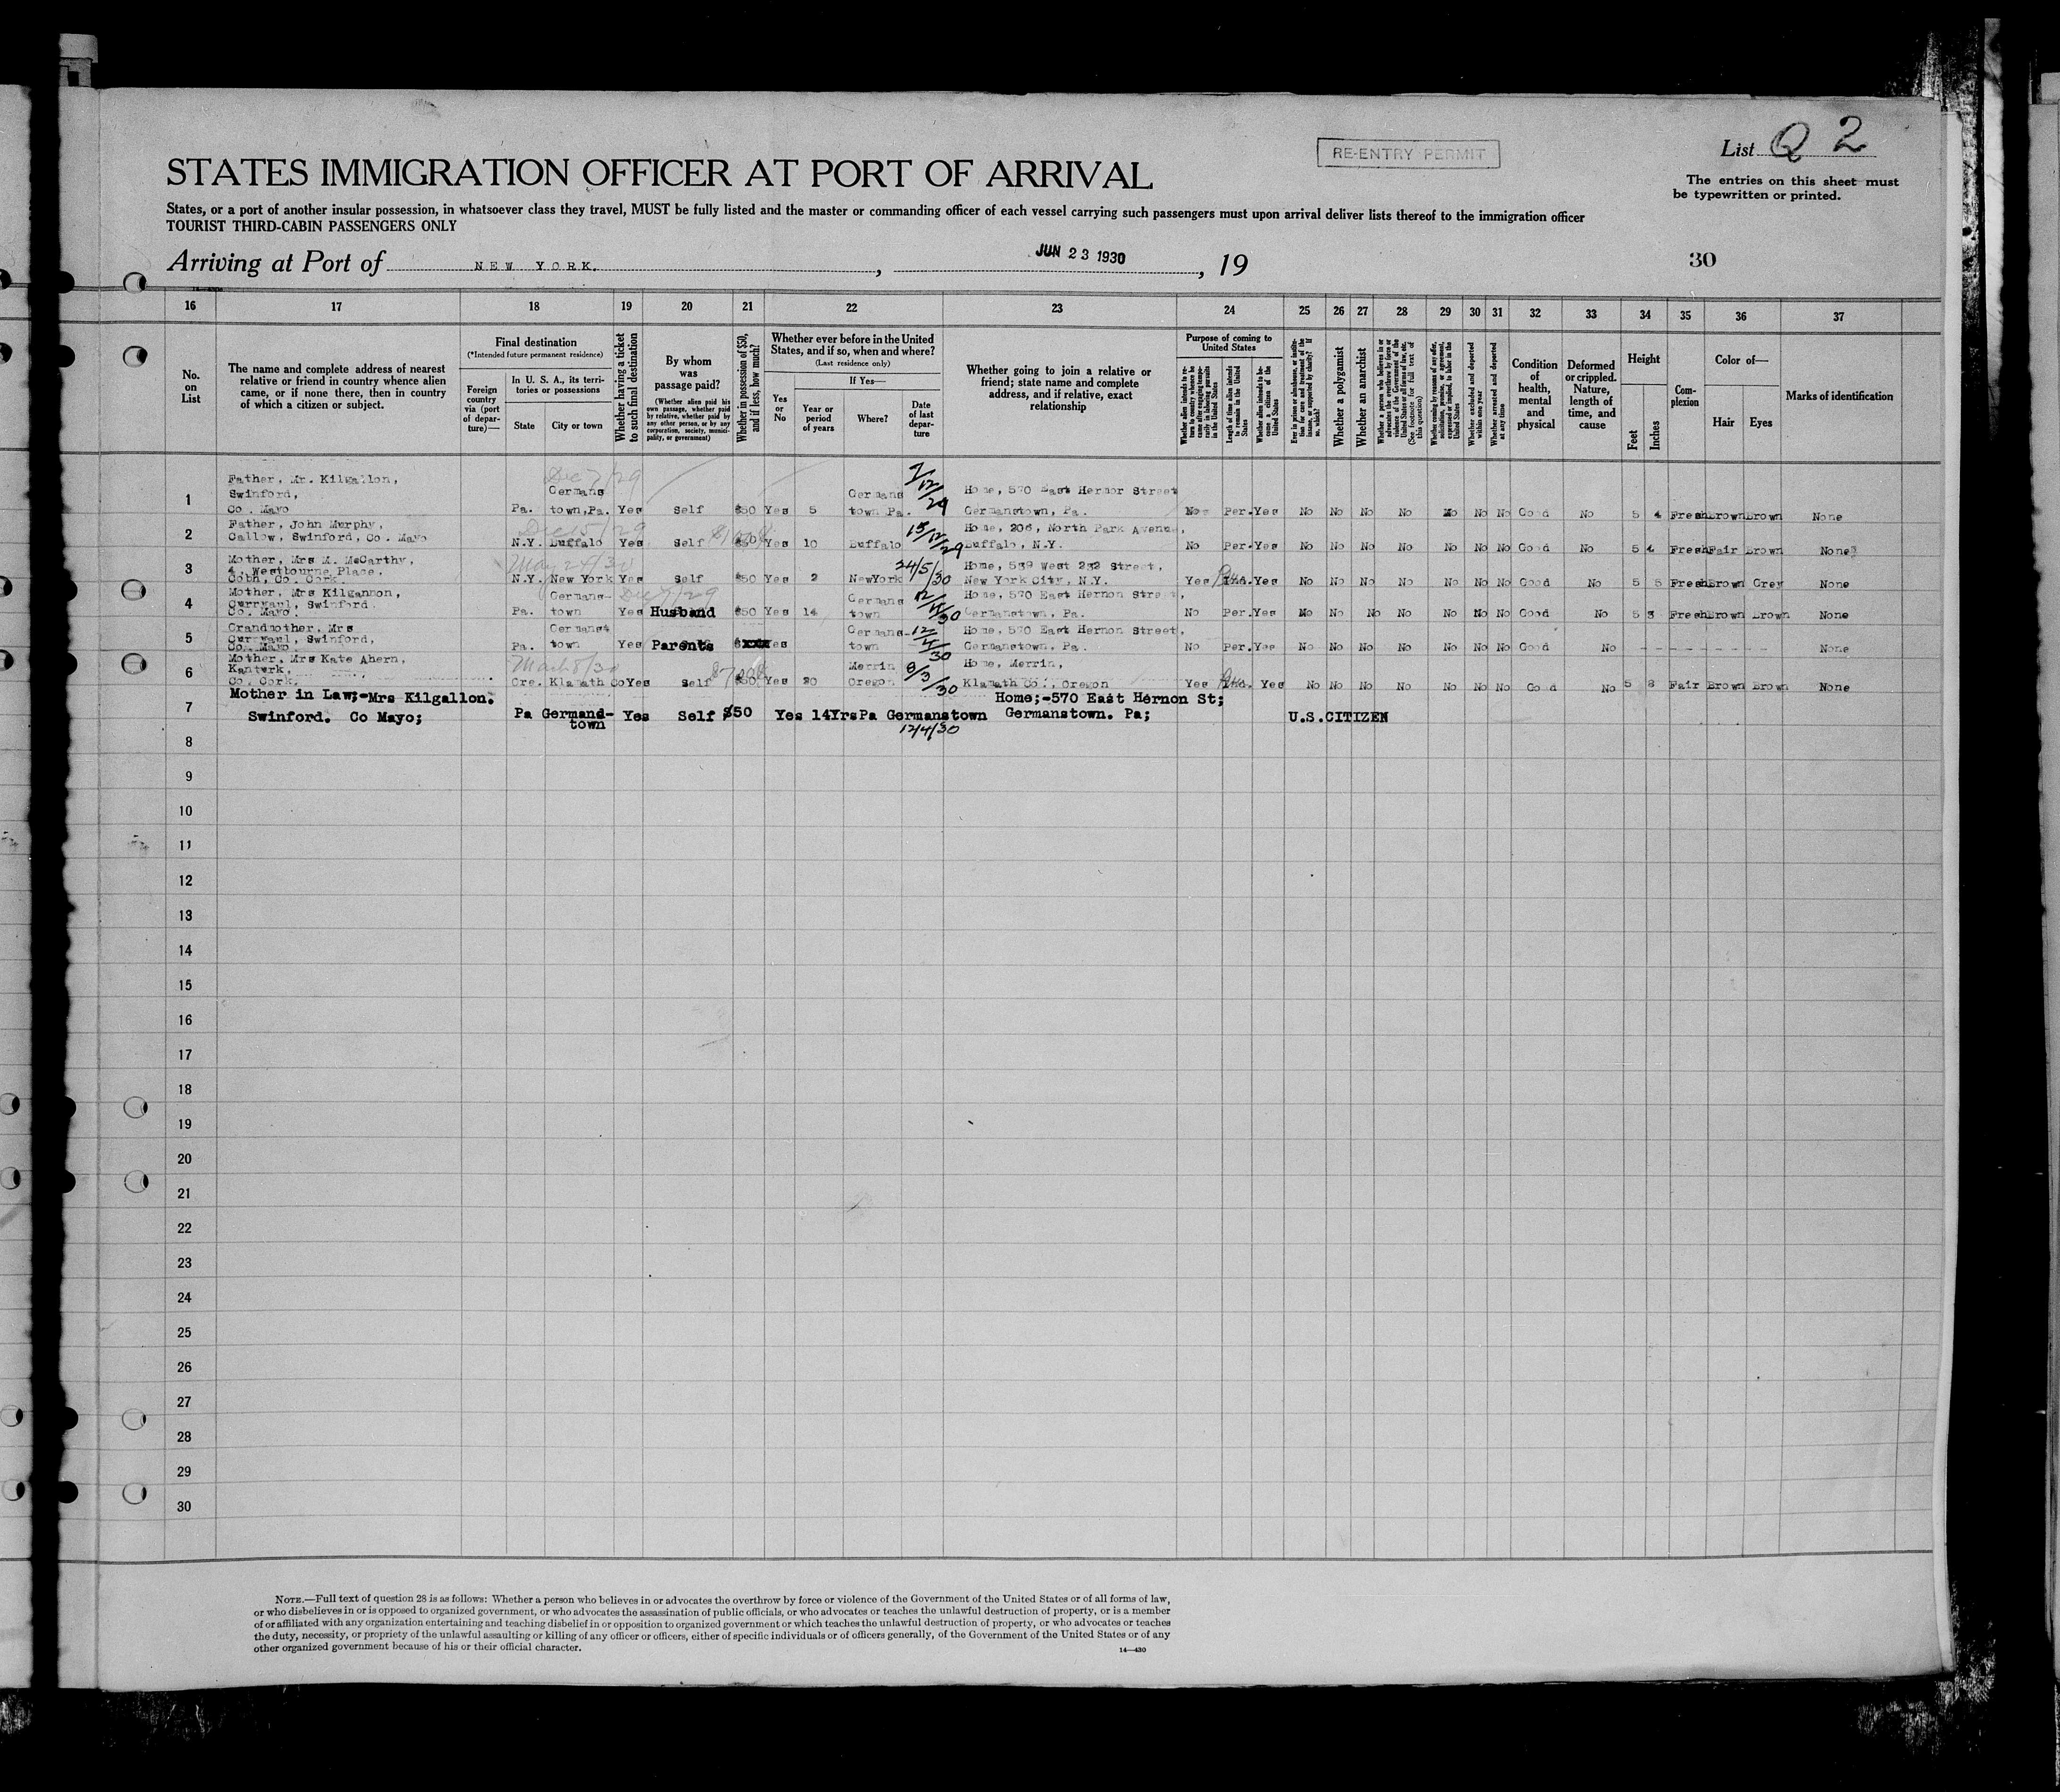 RE-ENTRY PERMIT
List Q 2
STATES IMMIGRATION OFFICER AT PORT OF ARRIVAL
The entries on this sheet must
be typewritten or printed.
States, or a port of another insular possession, in whatsoever class they travel, MUST be fully listed and the master or commanding officer of each vessel carrying such passengers must upon arrival deliver lists thereof to the immigration officer
TOURIST THIRD-CABIN PASSENGERS ONLY
Arriving at Port of NEW YORK. , JUN 23 1930 , 19 30
16 17 18 19 20 21 22 23 24 25 26 27 28 29 30 31 32 33 34 35 36 37
No. on List
The name and complete address of nearest
relative or friend in country whence alien
came, or if none there, then in country
of which a citizen or subject.
Final destination
(*Intended future permanent residence)
Foreign country via (port of departure)—
In U. S. A., its territories or possessions
State City or town
Whether having a ticket to such final destination
By whom was passage paid?
(Whether alien paid his own passage, whether paid by relative, whether paid by any other person, or by any corporation, society, municipality, or government)
Whether in possession of $50, and if less, how much?
Whether ever before in the United
States, and if so, when and where?
(Last residence only)
Yes or No
If Yes—
Year or period of years
Where?
Date of last departure
Whether going to join a relative or
friend; state name and complete
address, and if relative, exact
relationship
Purpose of coming to United States
Whether alien intends to return to country whence he came after engaging temporarily in laboring pursuits in the United States
Length of time alien intends to remain in the United States
Whether alien intends to become a citizen of the United States
Ever in prison or almshouse, or institution for care and treatment of the insane, or supported by charity? If so, which?
Whether a polygamist
Whether an anarchist
Whether a person who believes in or advocates the overthrow by force or violence of the Government of the United States or all forms of law, etc. (See footnote for full text of this question)
Whether coming by reason of any offer, solicitation, promise, or agreement, express or implied, to labor in the United States
Whether excluded and deported within one year
Whether arrested and deported at any time
Condition of health, mental and physical
Deformed or crippled. Nature, length of time, and cause
Height
Feet Inches
Complexion
Color of—
Hair Eyes
Marks of identification
1 Father, Mr. Kilgallon,
Swinford,
Co. Mayo
Dec 7/29
Pa. Germans town, Pa. Yes Self $50 Yes 5 Germans town Pa. 7/12/29 Home, 570 East Hernor Street
Germanstown, Pa. No Per. Yes No No No No No No No Good No 5 4 Fresh Brown Brown None
2 Father, John Murphy,
Callow, Swinford, Co. Mayo
Dec 15/29
N.Y. Buffalo Yes Self $50 Yes 10 Buffalo 15/12/29 Home, 206, North Park Avenue,
Buffalo, N.Y. No Per. Yes No No No No No No No Good No 5 4 Fresh Fair Brown None
3 Mother, Mrs M. McCarthy,
4, Westbourne Place,
Cobh, Co. Cork.
May 24/30
N.Y. New York Yes Self $50 Yes 2 NewYork 24/5/30 Home, 539 West 232 Street,
New York City, N.Y. Yes Ind. Yes No No No No No No No Good No 5 5 Fresh Brown Grey None
4 Mother, Mrs Kilgannon,
Curryaul, Swinford.
Co. Mayo.
Dec 7/29
Pa. Germans- town Yes Husband $50 Yes 14 Germans town 12/4/30 Home, 570 East Hernon Street,
Germanstown, Pa. No Per. Yes No No No No No No No Good No 5 3 Fresh Brown Brown None
5 Grandmother, Mrs
Curryaul, Swinford,
Co. Mayo.
Pa. Germans town Yes Parents Yes Germans- town 12/4/30 Home, 570 East Hernon Street,
Germanstown, Pa. No Per. Yes No No No No No No No Good No - - - - - - - None
6 Mother, Mrs Kate Ahern,
Kanterk,
Co. Cork.
Mach 8/30
Ore. Klamath Co Yes Self $50 Yes 20 Merrin Oregon 8/3/30 Home, Merrin,
Klamath Co., Oregon Yes Ind. Yes No No No No No No No Good No 5 8 Fair Brown Brown None
7 Mother in Law;-Mrs Kilgallon.
Swinford. Co Mayo;
Pa Germand- town Yes Self $50 Yes 14Yrs Pa Germanstown 12/4/30 Home;-570 East Hernon St;
Germanstown. Pa; U.S.CITIZEN
8
9
10
11
12
13
14
15
16
17
18
19
20
21
22
23
24
25
26
27
28
29
30
NOTE.—Full text of question 28 is as follows: Whether a person who believes in or advocates the overthrow by force or violence of the Government of the United States or of all forms of law,
or who disbelieves in or is opposed to organized government, or who advocates the assassination of public officials, or who advocates or teaches the unlawful destruction of property, or is a member
of or affiliated with any organization entertaining and teaching disbelief in or opposition to organized government or which teaches the unlawful destruction of property, or who advocates or teaches
the duty, necessity, or propriety of the unlawful assaulting or killing of any officer or officers, either of specific individuals or of officers generally, of the Government of the United States or of any
other organized government because of his or their official character.
14—430